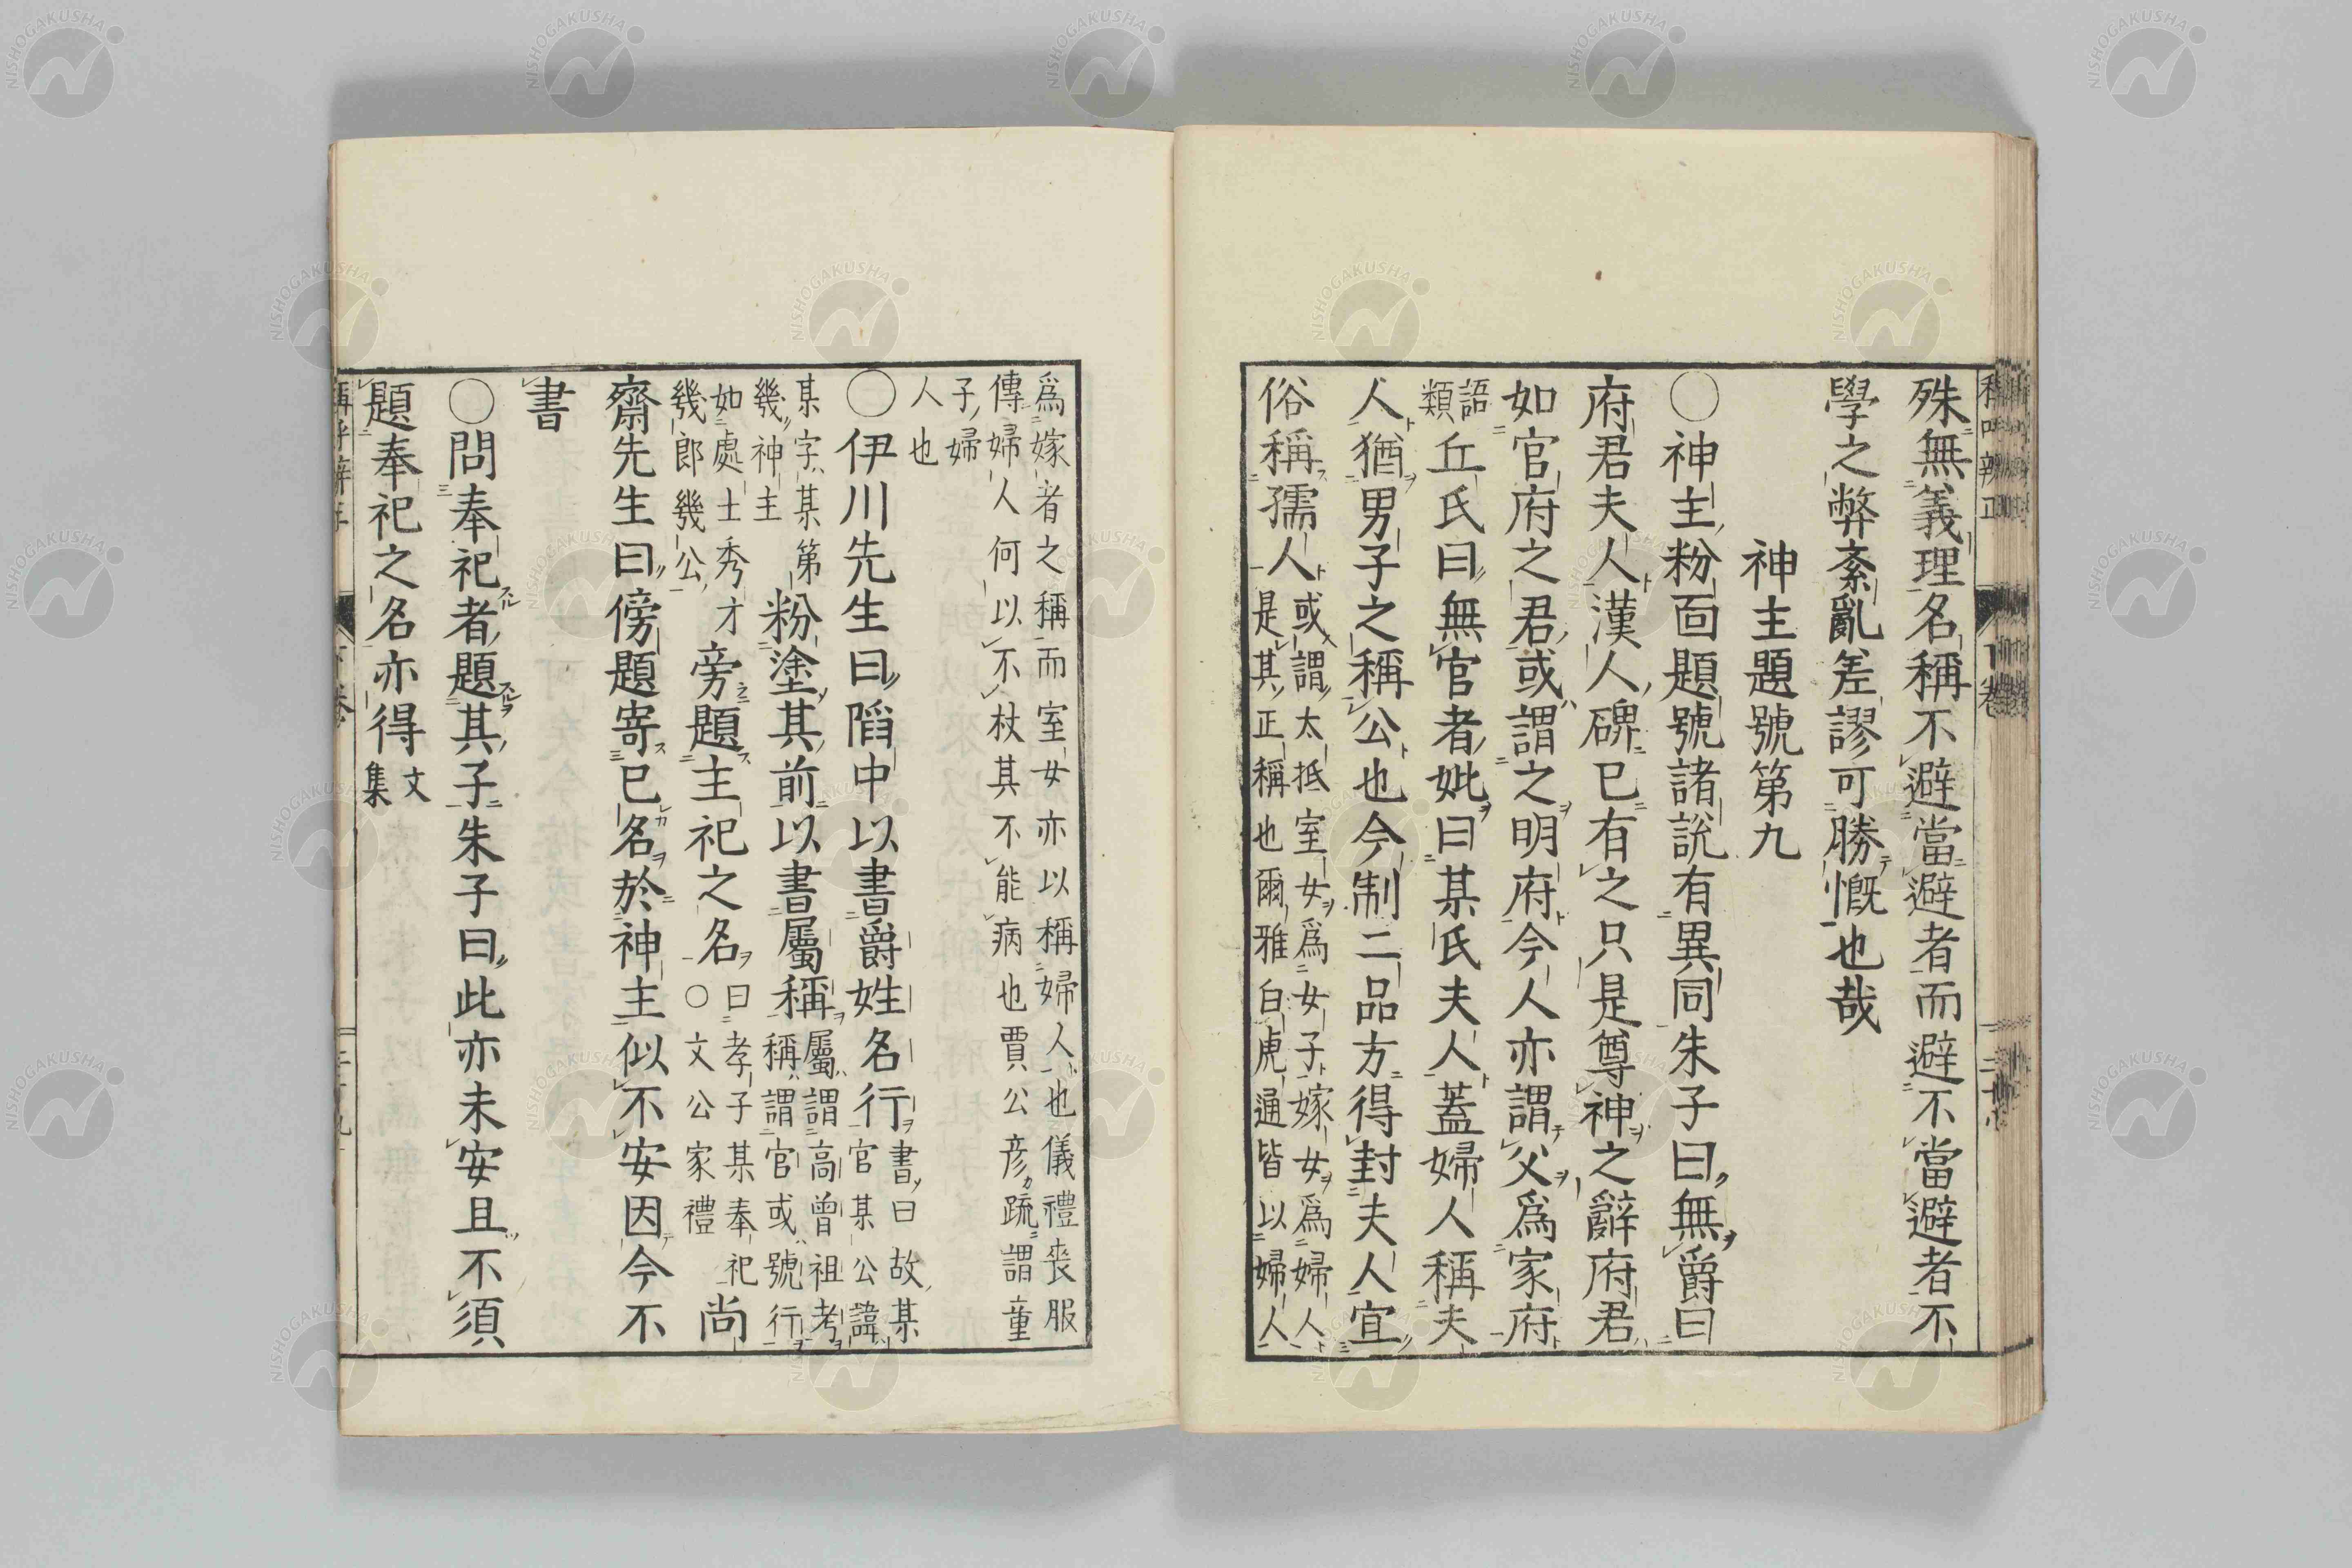 殊無義理名稱不避當避者而避不當避者不
學之弊紊亂差謬可勝慨也哉
神主題號第九
〇神主粉面題號諸說有異同朱子曰無爵曰
府君夫人漢人碑已有之只是尊神之辭府君
如官府之君或謂之明府今人亦謂父爲家府
語類
丘氏曰無官者妣曰某氏夫人蓋婦人稱夫
人猶男子之稱公也今制二品方得封夫人宜
俗稱孺人
或謂太抵室女爲女子嫁女爲婦人
是其正稱也爾雅白虎通皆以婦人
爲嫁者之稱而室女亦以稱婦人也儀禮喪服
傳婦人何以不杖其不能病也賈公彦疏謂童
子婦
人也
〇伊川先生曰䧟中以書爵姓名行
書曰故某
官某公諱
某字某第
幾神主
粉塗其前以書屬稱
屬謂高曾祖考
稱謂官或號行
如處士秀才
幾郎幾公
旁題主祀之名
曰孝子某奉祀
〇文公家禮
尚
齋先生曰傍題寄已名於神主似不安因今不
書
〇問奉祀者題其子朱子曰此亦未安且不須
題奉祀之名亦得
文集
NISHOGAKUSHA